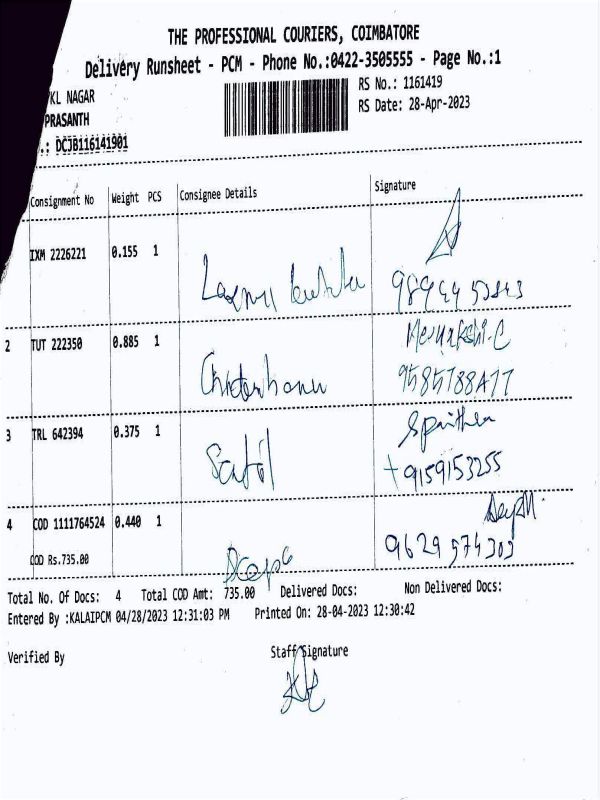 THE PROFESSIONAL COURIERS, COIMBATORE
Delivery Runsheet - PCM - Phone No.:0422-3505555 - Page No.:1
KL NAGAR
RS No.: 1161419
PRASANTH
RS Date: 28-Apr-2023
.: DCJB116141901
Consignment No Weight PCS Consignee Details Signature
IXM 2226221 0.155 1
2 TUT 222350 0.885 1
9585788477
3 TRL 642394 0.375 1
+9159153255
4 COD 1111764524 0.440 1
9629574303
COD Rs.735.00
Total No. Of Docs: 4 Total COD Amt: 735.00 Delivered Docs: Non Delivered Docs:
Entered By :KALAIPCM 04/28/2023 12:31:03 PM Printed On: 28-04-2023 12:30:42
Verified By Staff Signature